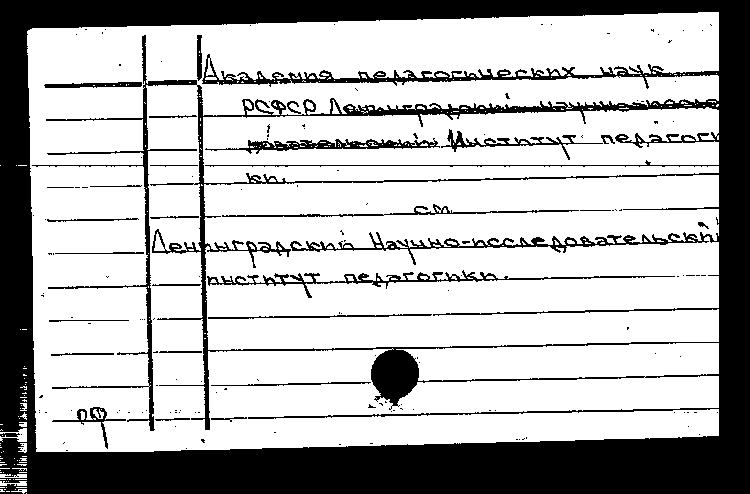 Академия педагогических наук
РСФСР Ленинградский научно-иссле
довательский Институт педагоги
ки.
см
Ленинградский Научно-исследовательский
институт педагогики.